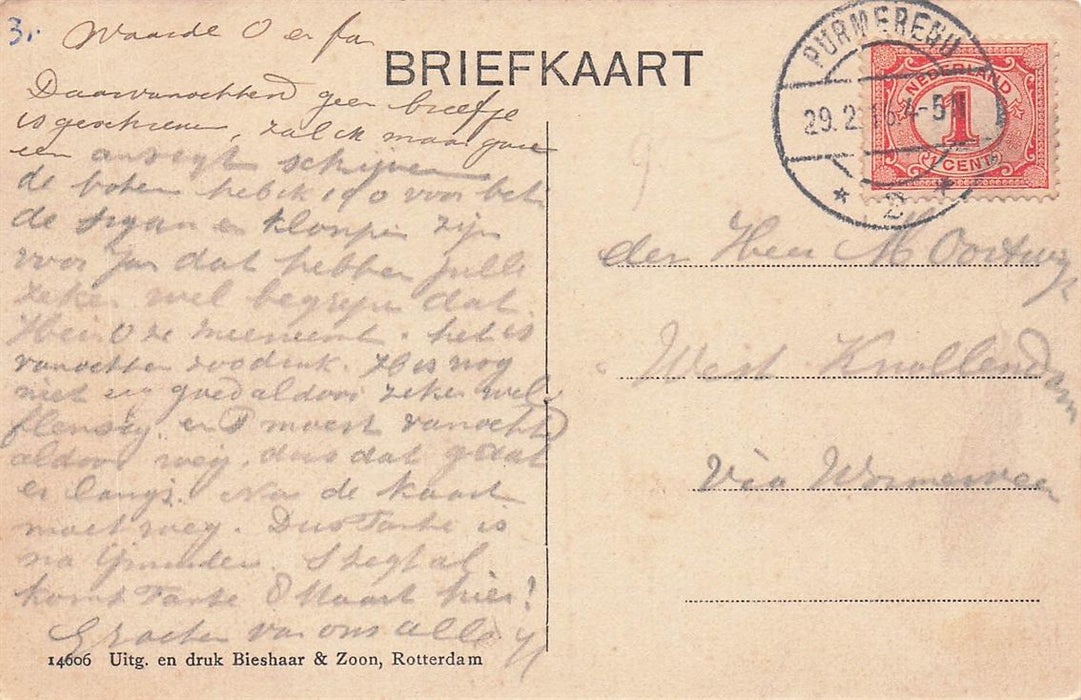 3.
Waarde O en fam
BRIEFKAART
PURMEREND
29.2 4-5N
2
NEDERLAND
1
1 CENT
Daar vanochtend geen briefje
is geschreven, zal ik maar gauw
een schrijven
de boter heb ik voor
de sigaren klompen zijn
voor Jan dat hebben jullie
zeker wel begrepen dat
Heer O ze meeneemt. het is
vanochten zoo druk. is nog
niet erg goed aldoor zeker wel
en P moest vanocht
aldoor weg. dus dat gaat
er langs. Nou de kaart
moet weg. Dus Tante is
na
komt Tante 8 Maart hier!
Groeten van ons alle
den Heer M Oostwijk
West Knollendam
Via Wormerveer
14606 Uitg. en druk Bieshaar & Zoon, Rotterdam